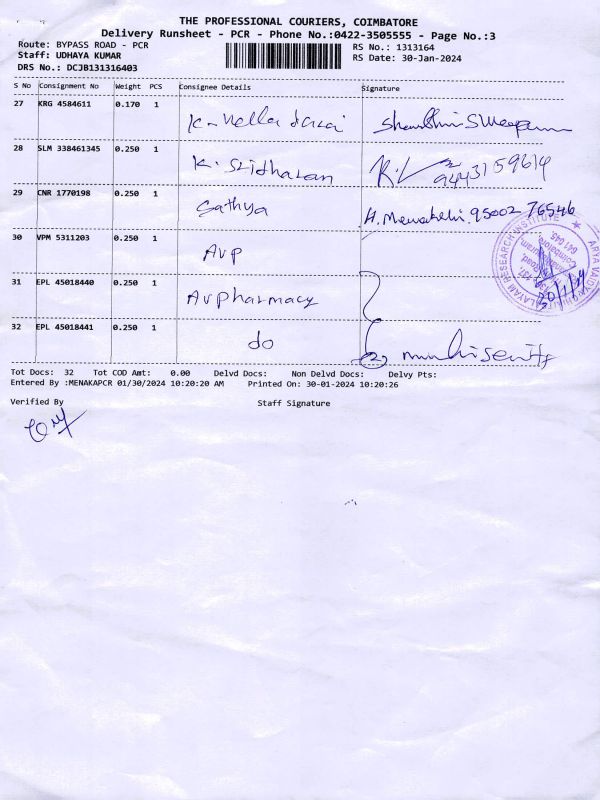 THE PROFESSIONAL COURIERS, COIMBATORE
Delivery Runsheet - PCR - Phone No.:0422-3505555 - Page No.:3
Route: BYPASS ROAD - PCR
Staff: UDHAYA KUMAR
DRS No.: DCJB131316403
RS No.: 1313164
RS Date: 30-Jan-2024
S No Consignment No Weight PCS Consignee Details Signature
27 KRG 4584611 0.170 1
K.
28 SLM 338461345 0.250 1
K. Sridharan 9443159614
29 CNR 1770198 0.250 1
Sathya 95002 76546
30 VPM 5311203 0.250 1
AVP
31 EPL 45018440 0.250 1
AVPharmacy
32 EPL 45018441 0.250 1
do
Tot Docs: 32 Tot COD Amt: 0.00 Delvd Docs: Non Delvd Docs: Delvy Pts:
Entered By :MENAKAPCR 01/30/2024 10:20:20 AM Printed On: 30-01-2024 10:20:26
Verified By Staff Signature